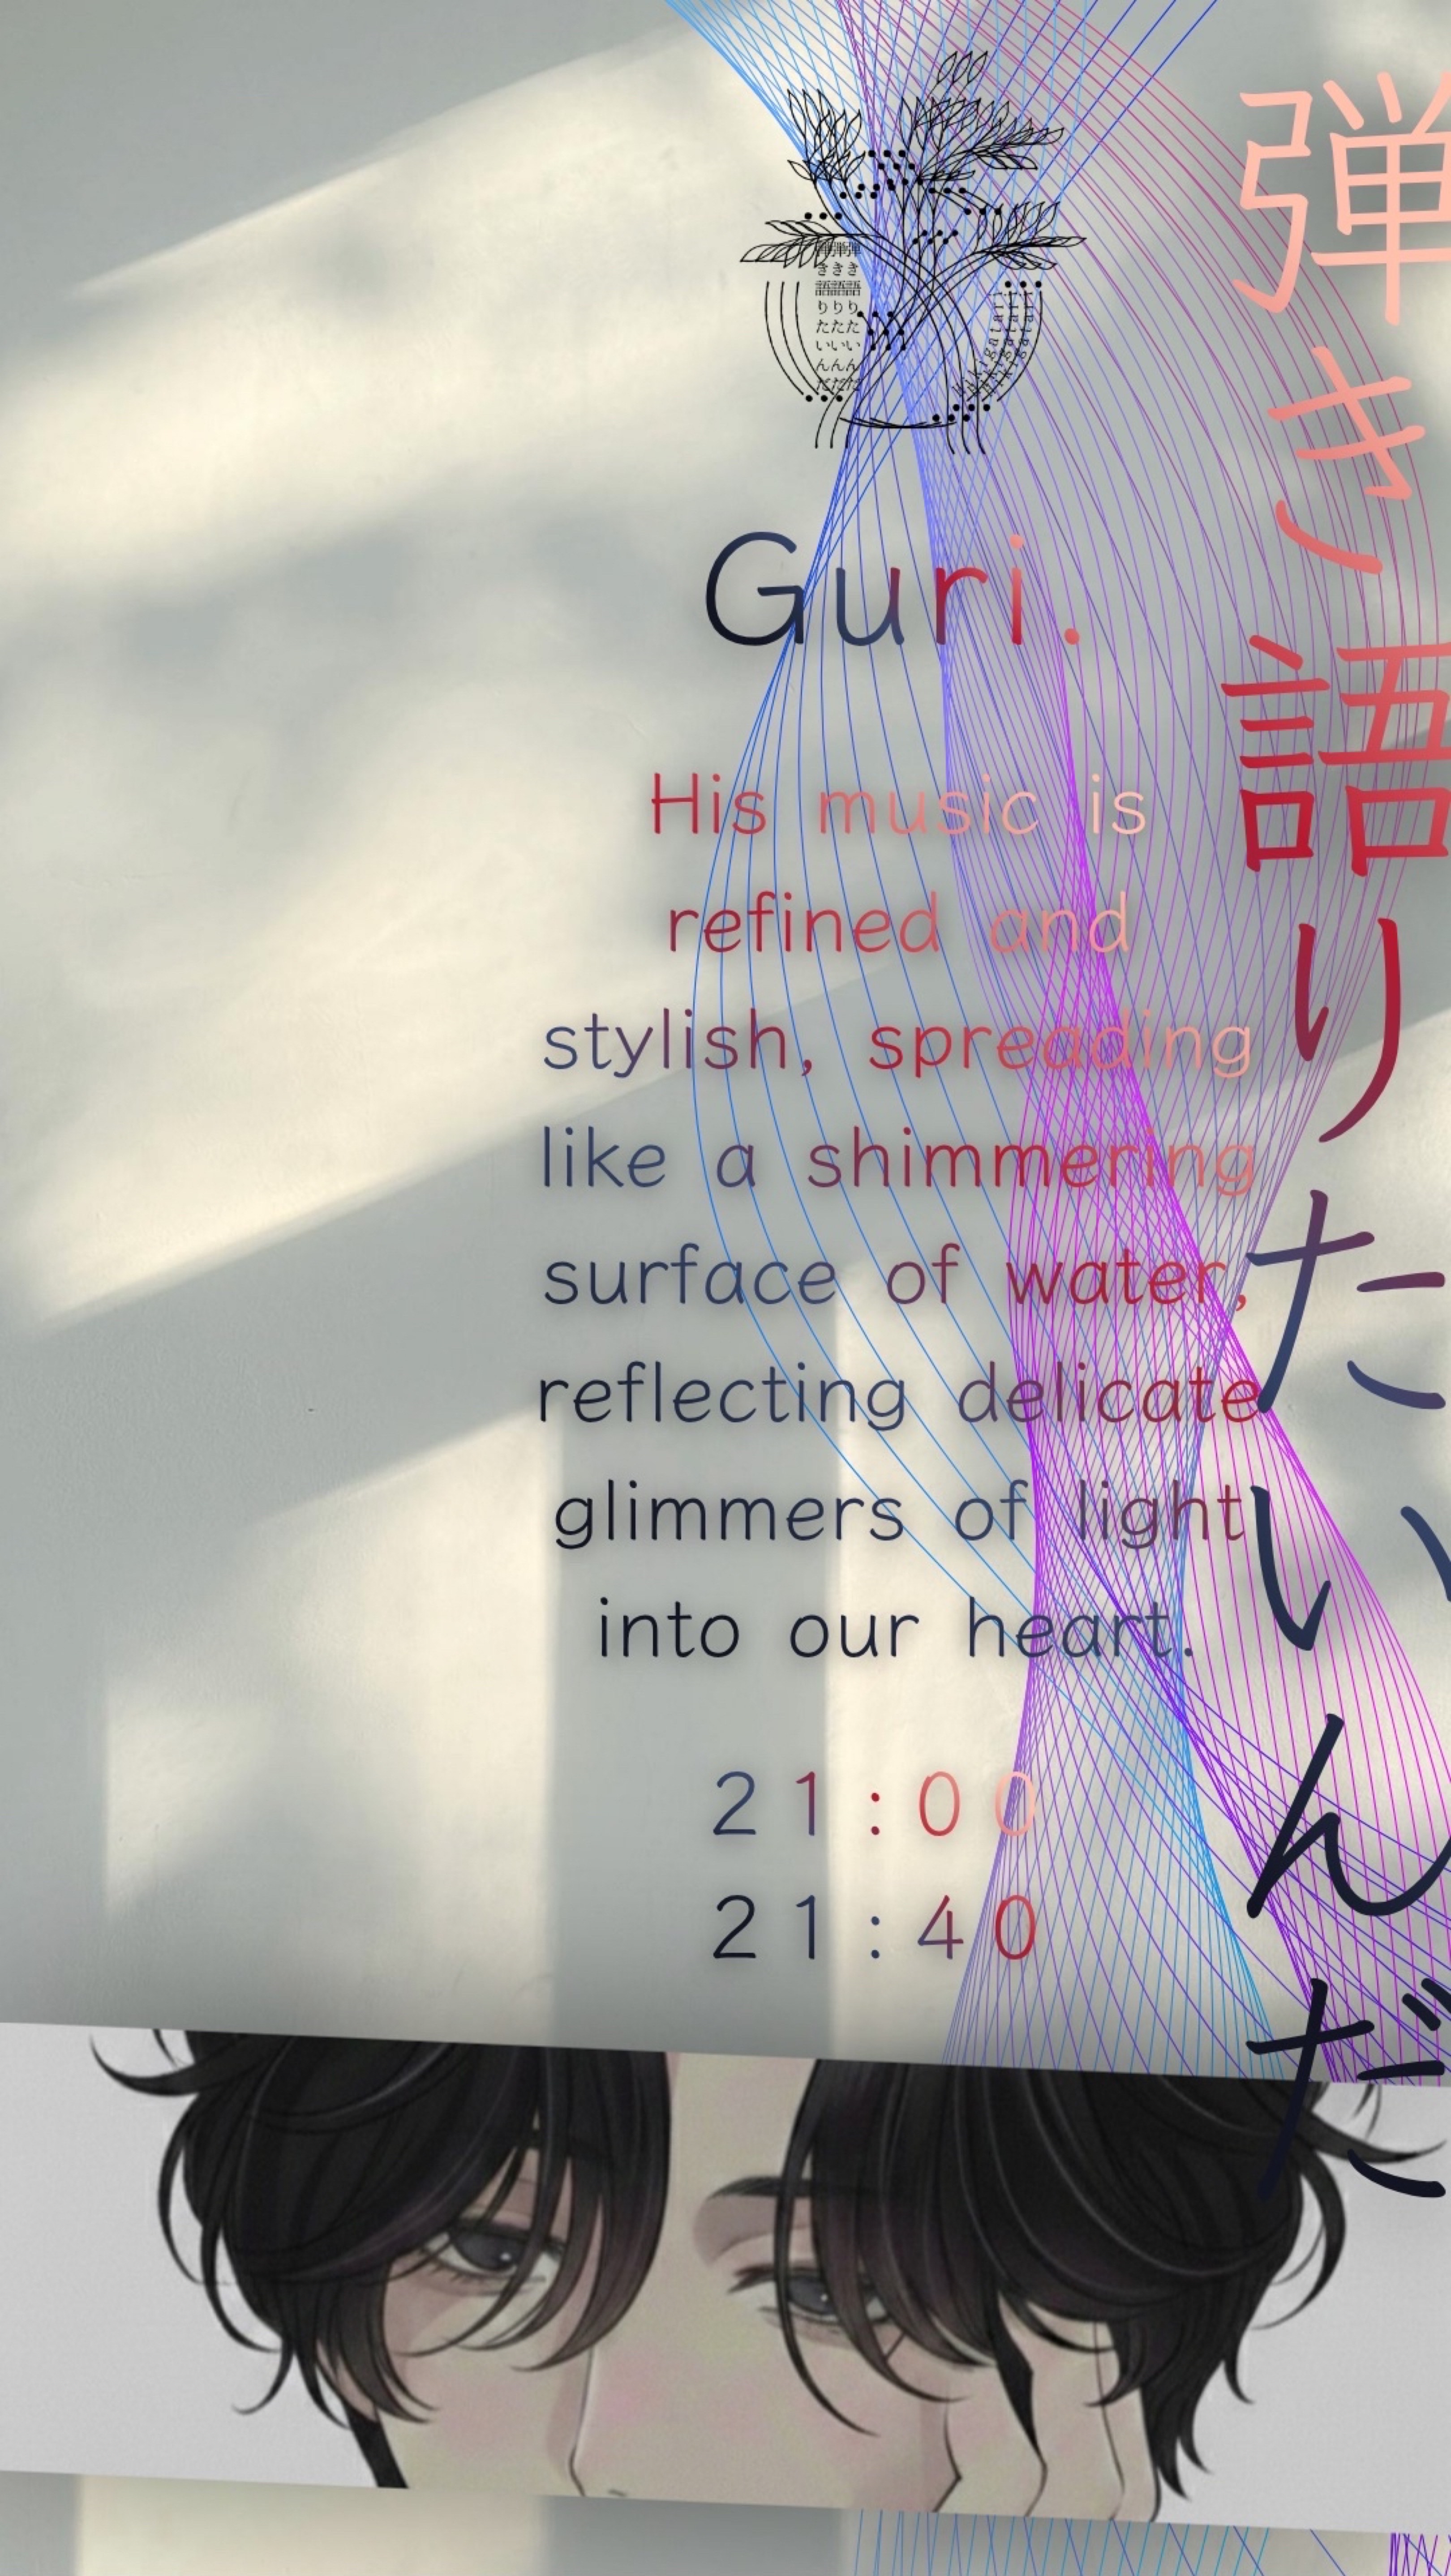 弾き語りたいんだ
弾き語りたいんだ
弾き語りたいんだ
弾き語りたいんだ
Guri.
His music is
refined and
stylish, spreading
like a shimmering
surface of water,
reflecting delicate
glimmers of light
into our heart.
21:00
21:40